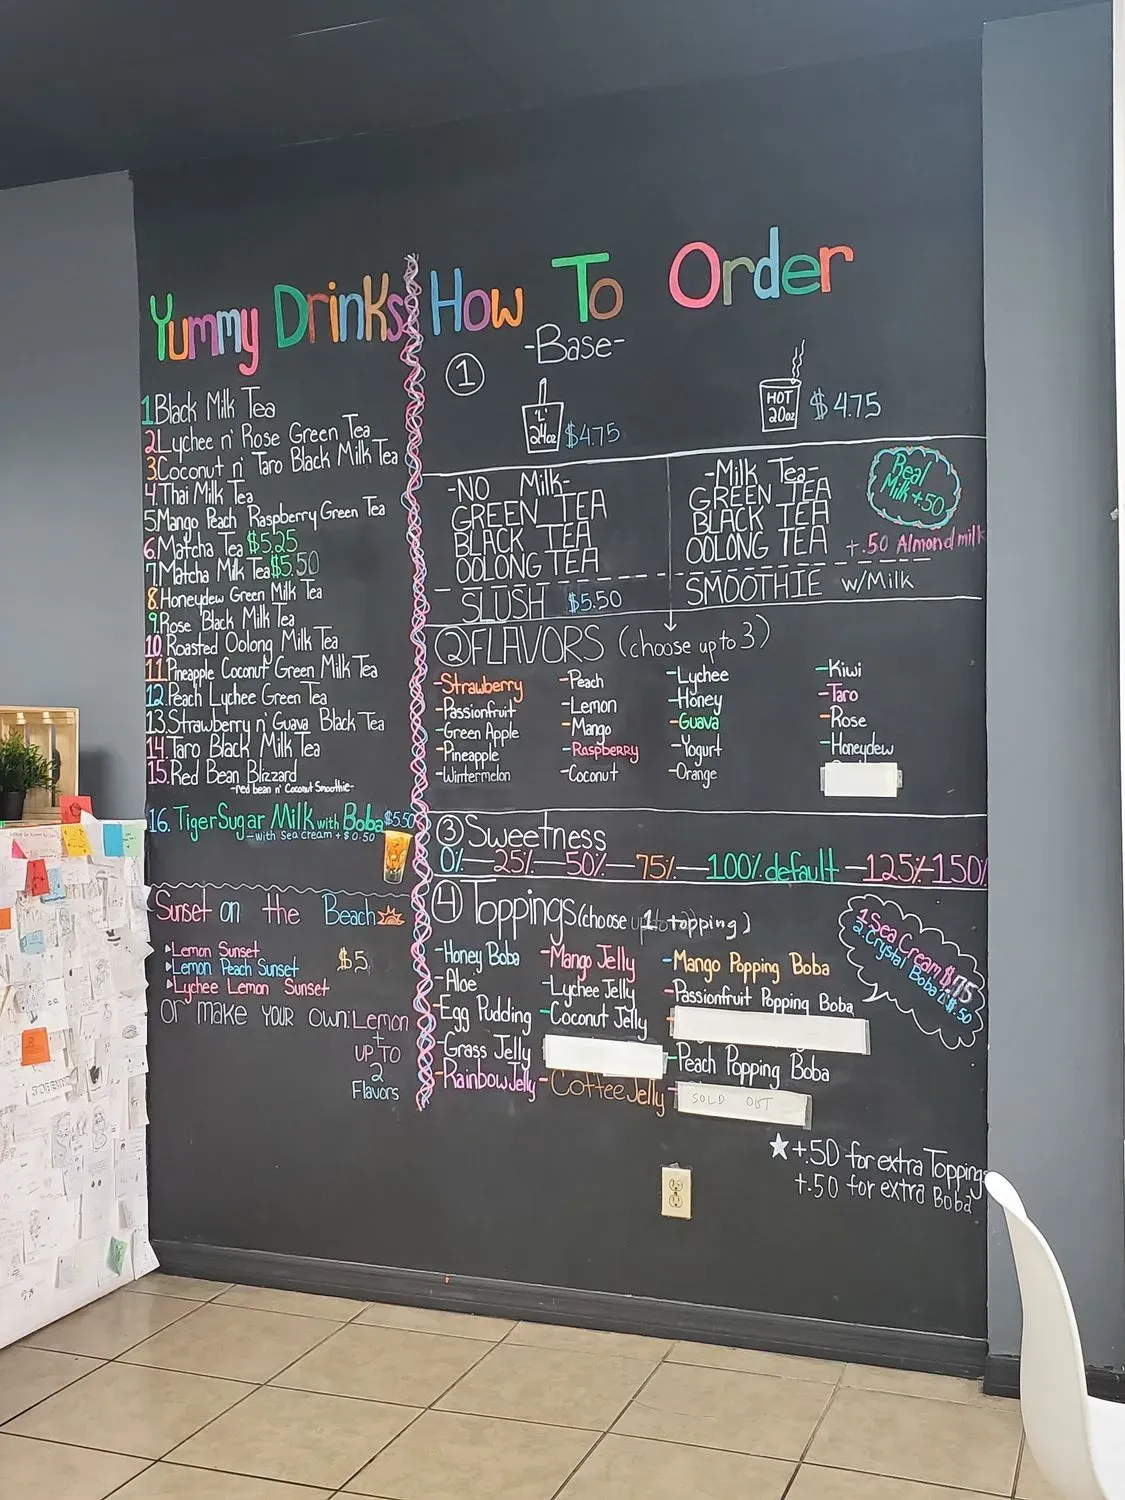 Yummy Drinks
1 Black Milk Tea
2 Lychee n' Rose Green Tea
3. Coconut n' Taro Black Milk Tea
4. Thai Milk Tea
5. Mango Peach Raspberry Green Tea
6. Matcha Tea $5.25
7. Matcha Milk Tea $5.50
8. Honeydew Green Milk Tea
9. Rose Black Milk Tea
10. Roasted Oolong Milk Tea
11 Pineapple Coconut Green Milk Tea
12. Peach Lychee Green Tea
13. Strawberry n' Guava Black Tea
14. Taro Black Milk Tea
15. Red Bean Blizzard
-red bean n' Coconut Smoothie-
16. Tiger Sugar Milk with Boba $5.50
-with Sea cream + $0.50
Sunset on the Beach
Lemon Sunset
Lemon Peach Sunset
Lychee Lemon Sunset
$5
or make your own: Lemon
+
UP TO
2
Flavors
How To Order
1 -Base-
"L"
24oz $4.75
HOT
20oz $4.75
-NO Milk-
GREEN TEA
BLACK TEA
OOLONG TEA
SLUSH $5.50
-Milk Tea-
GREEN TEA
BLACK TEA
OOLONG TEA
Real
Milk +.50
+.50 Almond milk
SMOOTHIE w/Milk
2 FLAVORS (choose up to 3)
-Strawberry
-Passionfruit
-Green Apple
-Pineapple
-Wintermelon
-Peach
-Lemon
-Mango
-Raspberry
-Coconut
-Lychee
-Honey
-Guava
-Yogurt
-Orange
-Kiwi
-Taro
-Rose
-Honeydew
3 Sweetness
0%—25%—50%—75%—100% default—125%-150%
4 Toppings (choose 1 topping)
-Honey Boba
-Aloe
-Egg Pudding
-Grass Jelly
-Rainbow Jelly
-Mango Jelly
-Lychee Jelly
-Coconut Jelly
-Coffee Jelly
-Mango Popping Boba
-Passionfruit Popping Boba
-Peach Popping Boba
SOLD OUT
1 Sea Cream
2. Crystal Boba
+.50 for extra Toppings
+.50 for extra Boba